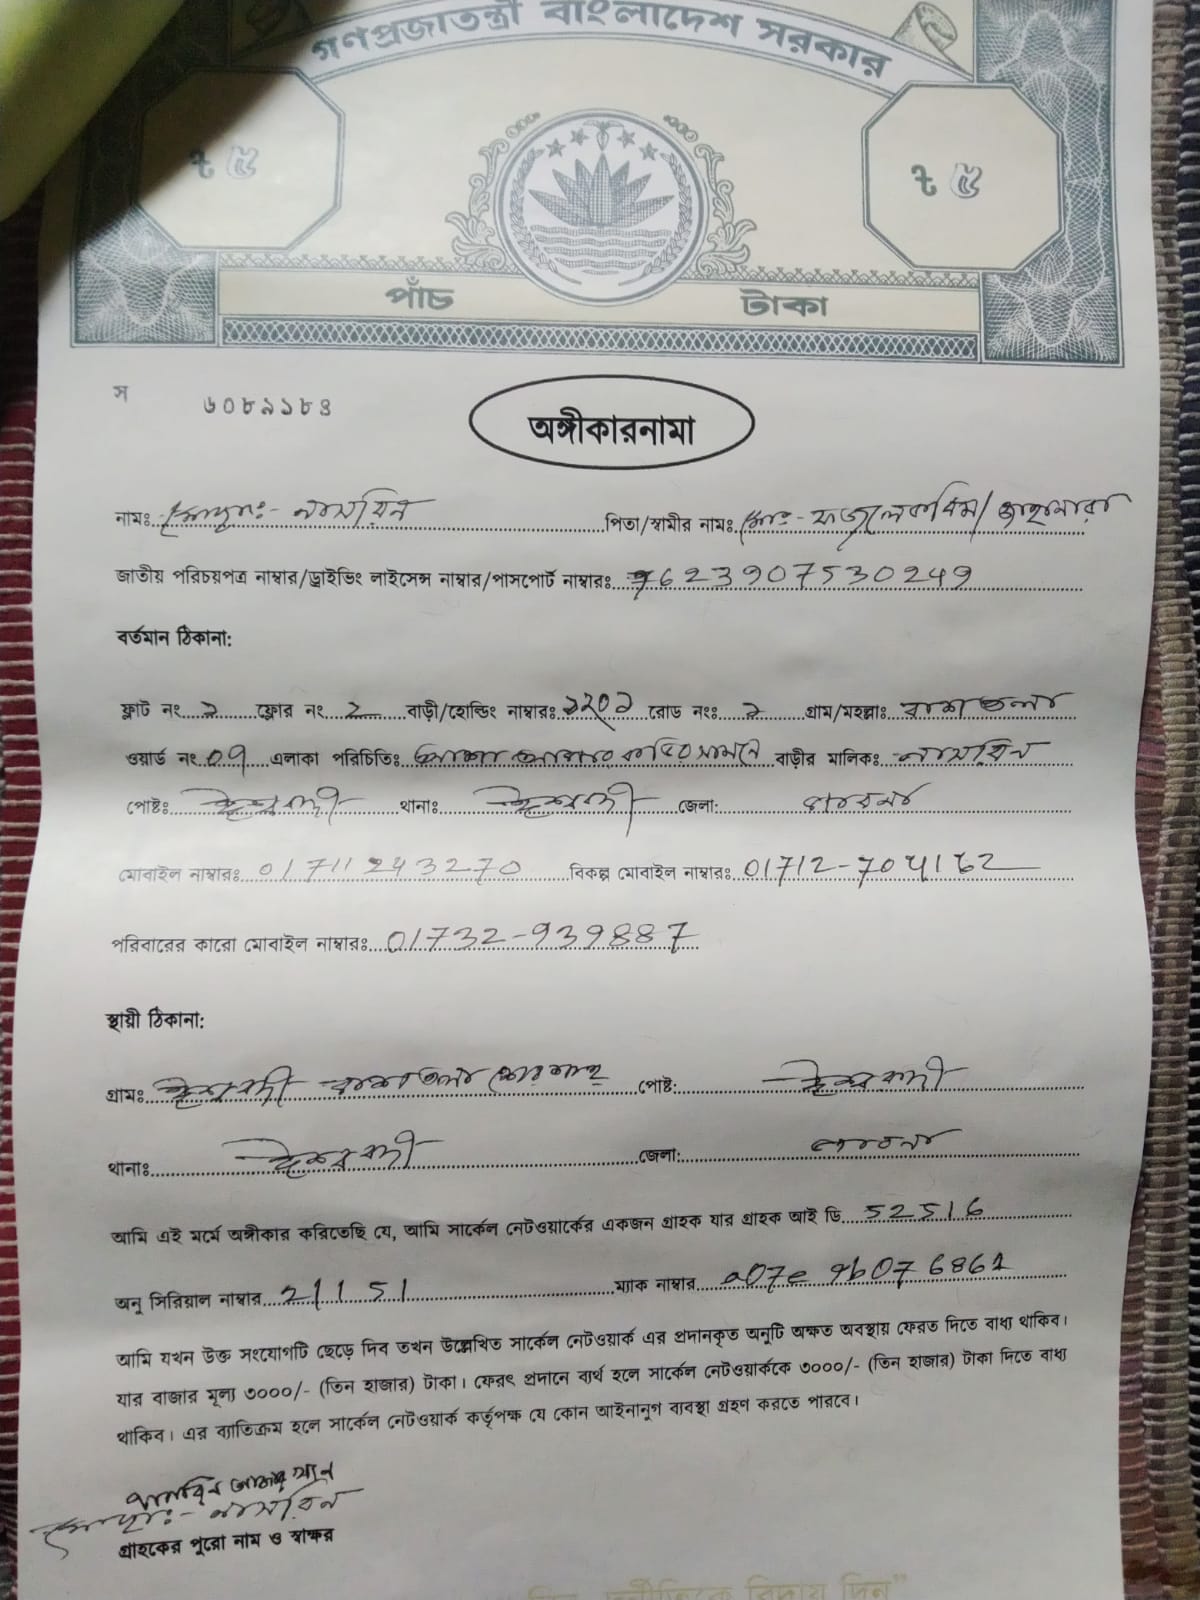 গণপ্রজাতন্ত্রী বাংলাদেশ সরকার
৳ ৫ ৳ ৫
পাঁচ টাকা
স ৬০৮৯১৮৪
অঙ্গীকারনামা
নামঃ মোছাঃ- নাসরিন পিতা/স্বামীর নামঃ মোঃ- ফজলে করিম/ জাহানারা
জাতীয় পরিচয়পত্র নাম্বার/ড্রাইভিং লাইসেন্স নাম্বার/পাসপোর্ট নাম্বারঃ 7623907530249
বর্তমান ঠিকানা:
ফ্লাট নং ১ ফ্লোর নং 2 বাড়ী/হোল্ডিং নাম্বারঃ ১২০১ রোড নংঃ ১ গ্রাম/মহল্লাঃ
ওয়ার্ড নং 09 এলাকা পরিচিতিঃ সামনে বাড়ীর মালিকঃ নাসরিন
পোষ্টঃ ঈশ্বরদী থানাঃ ঈশ্বরদী জেলা: পাবনা
মোবাইল নাম্বারঃ 01711 243270 বিকল্প মোবাইল নাম্বারঃ 01712-704162
পরিবারের কারো মোবাইল নাম্বারঃ 01732-939887
স্থায়ী ঠিকানা:
গ্রামঃ ঈশ্বরদী পোষ্ট: ঈশ্বরদী
থানাঃ ঈশ্বরদী জেলা: পাবনা
আমি এই মর্মে অঙ্গীকার করিতেছি যে, আমি সার্কেল নেটওয়ার্কের একজন গ্রাহক যার গ্রাহক আই ডি 52516
অনু সিরিয়াল নাম্বার 21151 ম্যাক নাম্বার a07e 9b07 6861
আমি যখন উক্ত সংযোগটি ছেড়ে দিব তখন উল্লেখিত সার্কেল নেটওয়ার্ক এর প্রদানকৃত অনুটি অক্ষত অবস্থায় ফেরত দিতে বাধ্য থাকিব।
যার বাজার মূল্য ৩০০০/- (তিন হাজার) টাকা। ফেরৎ প্রদানে ব্যর্থ হলে সার্কেল নেটওয়ার্ককে ৩০০০/- (তিন হাজার) টাকা দিতে বাধ্য
থাকিব। এর ব্যাতিক্রম হলে সার্কেল নেটওয়ার্ক কর্তৃপক্ষ যে কোন আইনানুগ ব্যবস্থা গ্রহণ করতে পারবে।
মোছাঃ- নাসরিন
গ্রাহকের পুরো নাম ও স্বাক্ষর
বিদায় দিন"